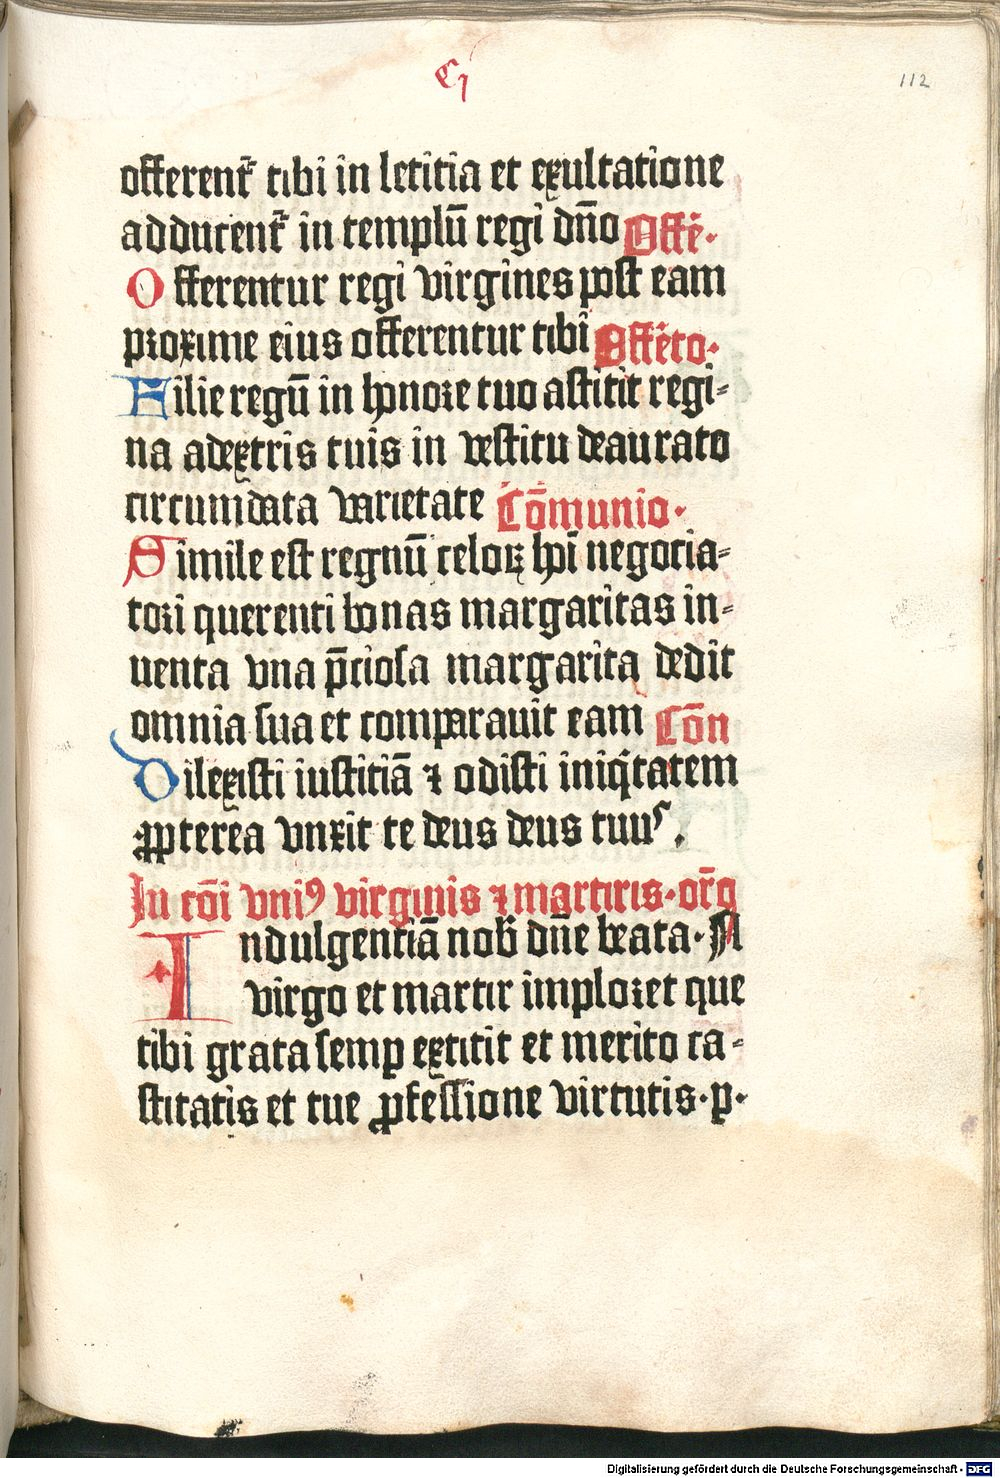 cj
112
offerent᷑ tibi in leticia et exultatione
adducent᷑ in templū regi dn̄o Offē.
Offerentur regi virgines post eam
proxime eius offerentur tibi Offēto.
Filie regū in honore tuo astitit regi-
na adextris tuis in vestitu deaurato
circumdata varietate Cōmunio.
Simile est regnū celoꝝ hōi negocia-
tori querenti bonas margaritas in-
uenta vna p̄ciosa margarita dedit
omnia sua et comparauit eam Cōn
Dilexisti iusticiā ⁊ odisti iniq̄tatem
ꝓpterea vnxit te deus deus tuus.
In cōi vniꝰ virginis ⁊ martiris. or̄o
Indulgenciā nob̄ dn̄e beata. N
virgo et martir imploret que
tibi grata semꝑ extitit et merito ca-
stitatis et tue ꝓfessione virtutis. p.
Digitalisierung gefördert durch die Deutsche Forschungsgemeinschaft - DFG